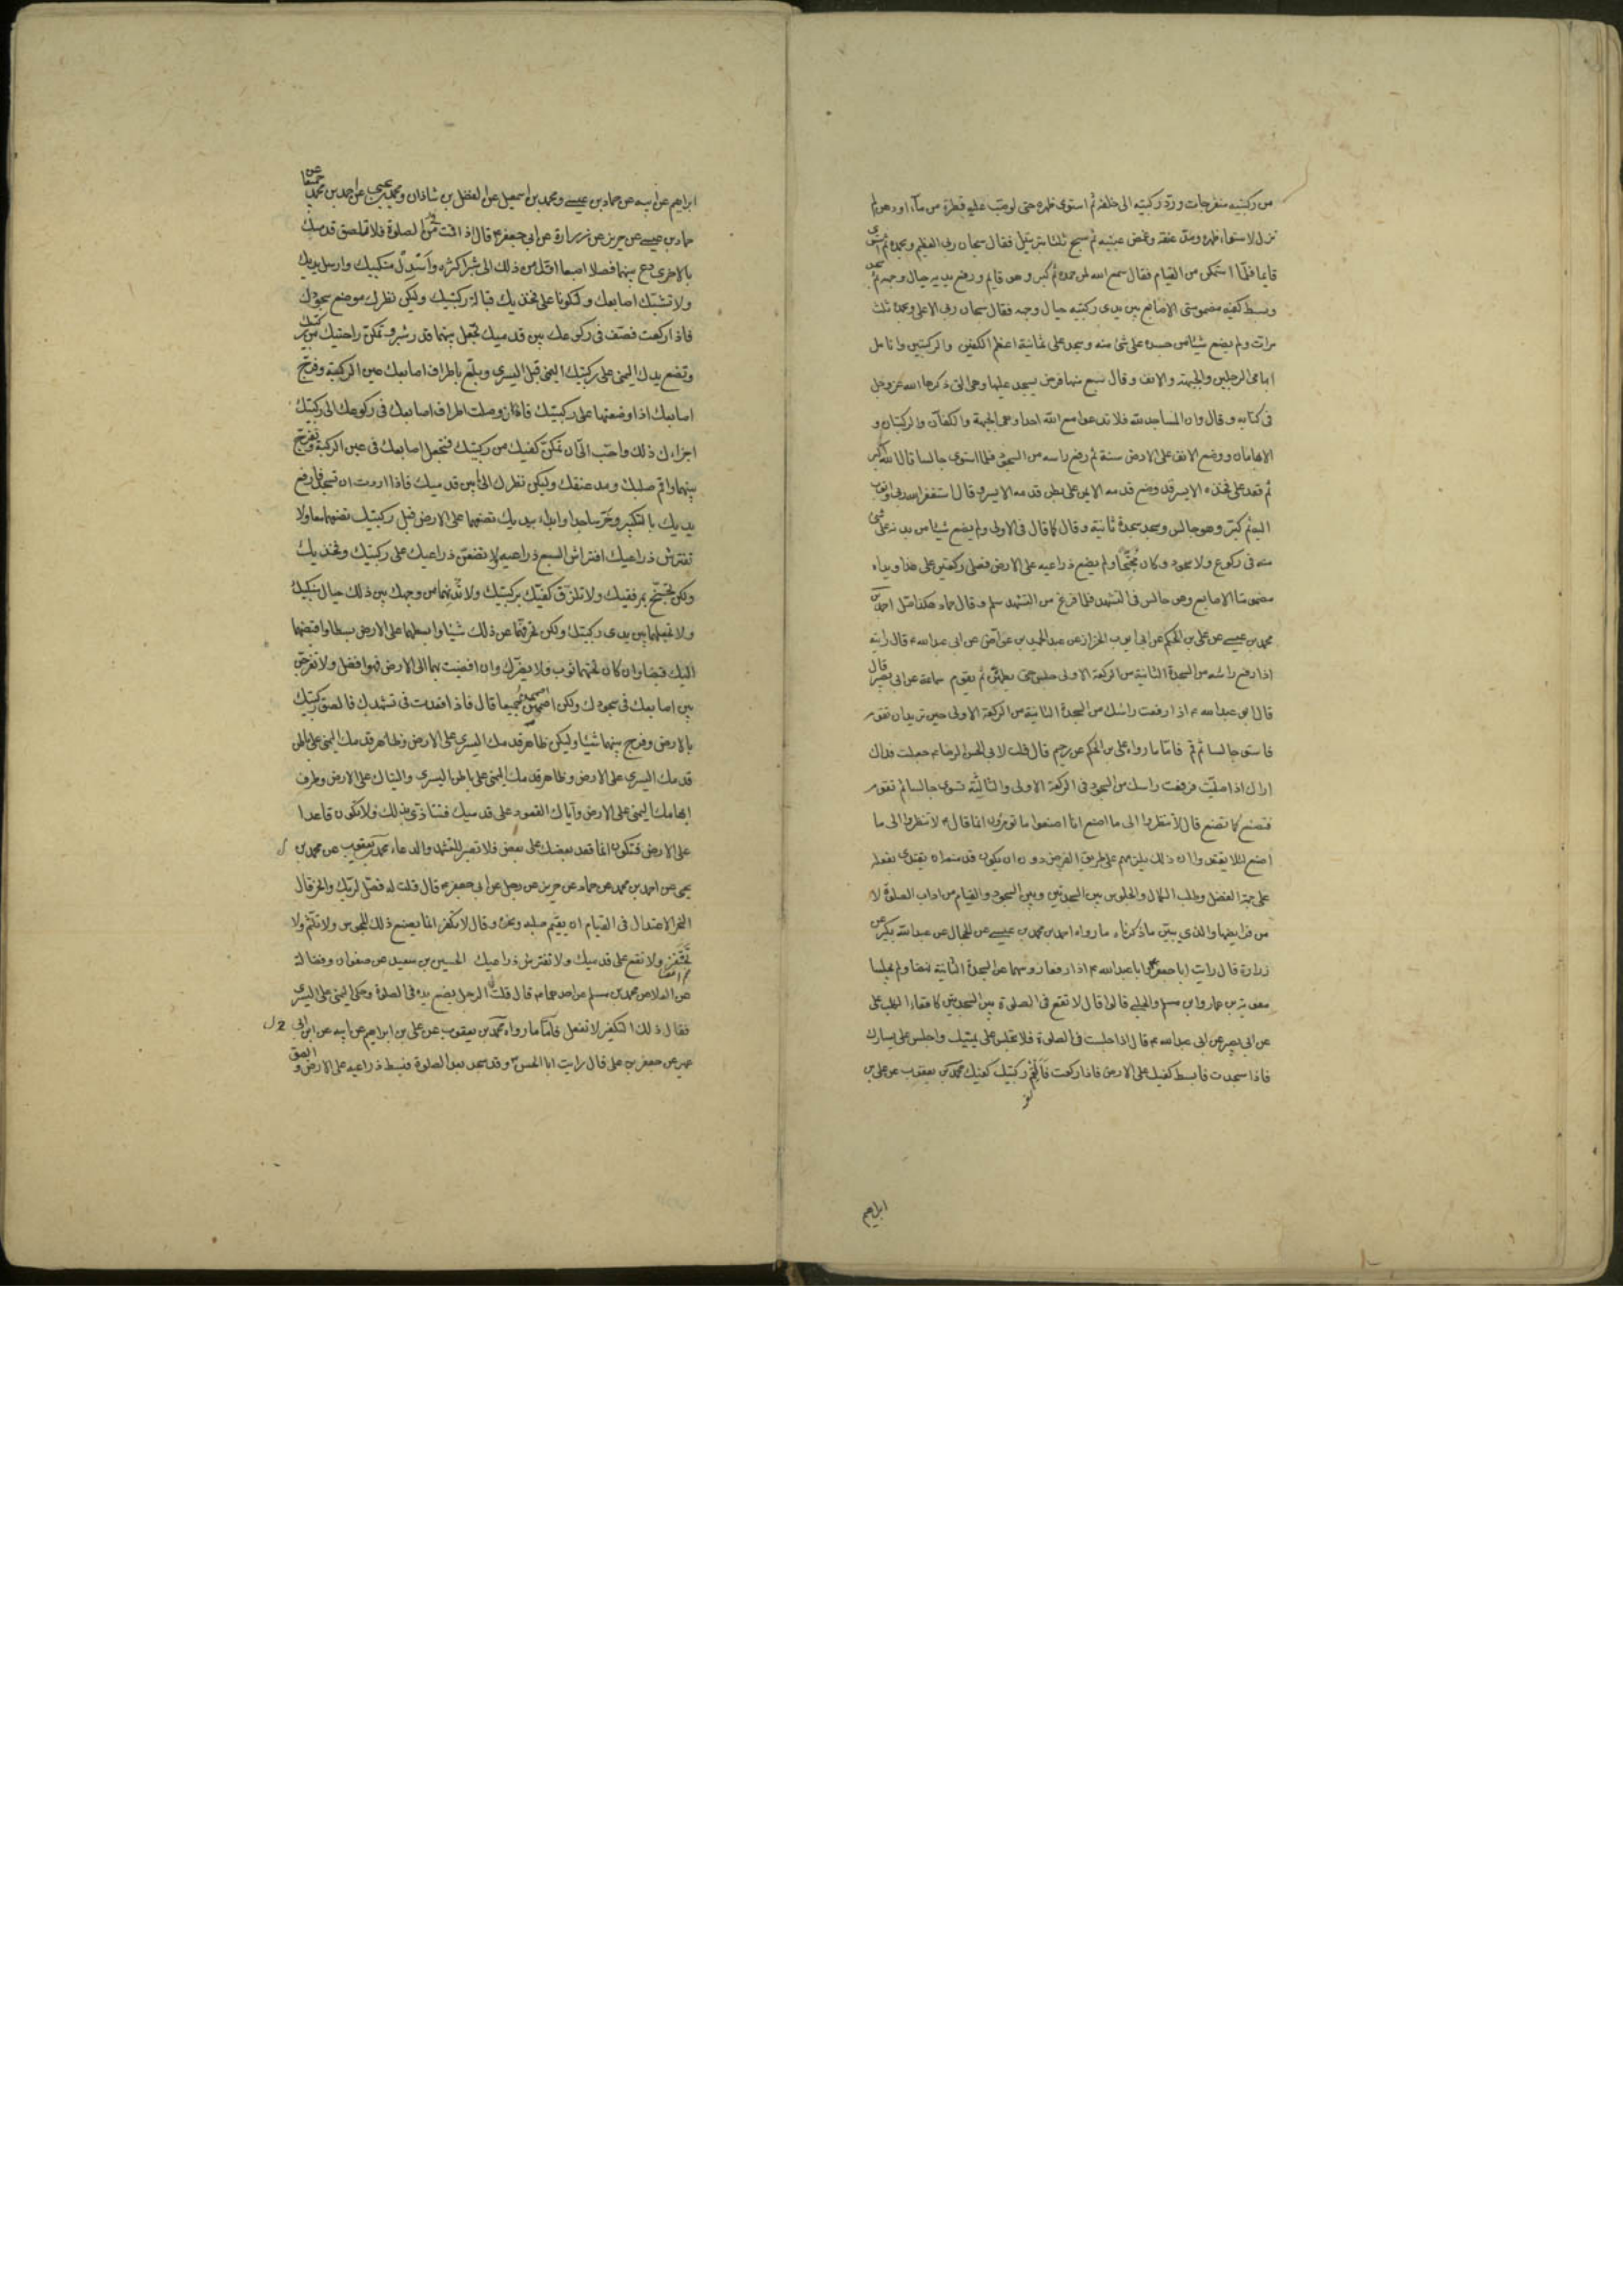 من ركبتيه منفرجات وردّ ركبتيه الى خلفه ثم استوى ظهره حتى لو صبّ عليه قطرة من ماء او دهن لم
تزل لاستواء ظهره ومدّ عنقه وغمض عينيه ثم سبح ثلثا بترتيل فقال سبحان ربى العظيم وبحمده ثم استوى
قايما فلمّا استمكن من القيام فقال سمع الله لمن حمده ثم كبر وهو قايم ورفع يديه حيال وجهه ثم سجد
وبسط كفيه مضمومتى الاصابع بين يدى ركبتيه حيال وجهه فقال سبحان ربى الاعلى وبحمده ثلث
مرات ولم يضع شيئا من جسده على شئ منه وسجد على ثمانية اعظم الكفين والركبتين وانامل
ابهامى الرجلين والجبهة والانف وقال سبع منها فرض يسجد عليها وهى التى ذكرها الله عز وجل
فى كتابه وقال وان المساجد لله فلا تدعوا مع الله احدا وهى الجبهة والكفان والركبتان و
الابهامان ووضع الانف على الارض سنة ثم رفع راسه من السجود فلما استوى جالسا قال الله اكبر
ثم قعد على فخذه الايسر قد وضع قدمه الايمن على بطن قدمه الايسر وقال استغفر الله ربى واتوب
اليه ثم كبّر وهو جالس وسجد سجدة ثانية وقال كما قال فى الاولى ولم يضع شيئا من بدنه على شئ
منه فى ركوع ولا سجود وكان مجنّحا ولم يضع ذراعيه على الارض فصلى ركعتين على هذا ويداه
مضمومتا الاصابع وهو جالس فى التشهد فلما فرغ من التشهد سلم وقال حماد هكذا صلّ احمد بن
محمد بن عيسى عن على بن الحكم عن ابى ايوب الخزاز عن عبد الحميد بن عواض عن ابى عبد الله ع قال رايته
اذا رفع راسه من السجدة الثانية من الركعة الاولى جلس حتى يطمئن ثم يقوم سماعة عن ابى بصير قال
قال ابو عبد الله ع اذا رفعت راسك من السجدة الثانية من الركعة الاولى حين تريد ان تقوم
فاستو جالسا ثم قم فاما ما رواه على بن الحكم عن رحيم قال قلت لابى الحسن الرضا ع جعلت فداك
اراك اذا صليّت فرفعت راسك من السجود فى الركعة الاولى والثالثة تستوى جالسا ثم تقوم
فنصنع كما تصنع قال لا تنظروا الى ما اصنع انا اصنعوا ما تؤمرون انما قال ع لا تنظروا الى ما
اصنع لئلا يعتقدوا ان ذلك يلزمهم على طريق الفرض دون ان يكون قد منع ان يقتدى بفعله
على جهة الفضل وطلب الكمال والجلوس بين السجدتين وبين السجود والقيام من اداب الصلوة لا
من فرايضها والذى يبيّن ما ذكرناه ما رواه احمد بن محمد بن عيسى عن الحجال عن عبد الله بكير عن
زرارة قال رايت ابا جعفر وابا عبد الله ع اذا رفعا روسهما من السجدة الثانية نهضا ولم يجلسا
معوية بن عمار وابن مسلم والحلبى قالوا قال لا تقع فى الصلوة بين السجدتين كاقعاء الكلب على
عن ابى بصير عن ابى عبد الله ع قال اذا جلست فى الصلوة فلا تجلس على يمينك واجلس على يسارك
فاذا سجدت فابسط كفيك على الارض فاذا ركعت فالقم ركبتيك كفيك محمد بن يعقوب عن على بن
ابراهيم
ابراهيم عن ابيه عن حماد بن عيسى ومحمد بن اسمعيل عن الفضل بن شاذان ومحمد بن يحيى عن احمد بن محمد جميعا عن
حماد بن عيسى عن حريز عن زرارة عن ابى جعفر ع قال اذا قمت فى الصلوة فلا تلصق قدمك
بالاخرى دع بينهما فصلا اصبعا اقل من ذلك الى شبر اكثره واسدل منكبيك وارسل يديك
ولا تشبك اصابعك ولتكونا على فخذيك قبالة ركبتيك وليكن نظرك موضع سجودك
فاذا ركعت فصف فى ركوعك بين قدميك تجعل بينهما قدر شبر وتمكن راحتيك من ركبتيك
وتضع يدك اليمنى على ركبتيك اليمنى قبل اليسرى وبلّع باطراف اصابعك عين الركبة وفرّج
اصابعك اذا وضعتها على ركبتيك فاذا وصلت اطراف اصابعك فى ركوعك الى ركبتيك
اجزاءك ذلك واحب الىّ ان تمكن كفيك من ركبتيك فتجعل اصابعك فى عين الركبة وتفرّج
بينهما واقم صلبك ومد عنقك وليكن نظرك الى ما بين قدميك فاذا اردت ان تسجد فارفع
يديك بالتكبير وخرّ ساجدا وابدا بيديك تضعهما على الارض قبل ركبتيك تضعهما معا ولا
تفترش ذراعيك افتراش السبع ذراعيه ولا تضعنّ ذراعيك على ركبتيك وفخذيك
ولكن تجنّح بمرفقيك ولا تلزق كفيك بركبتيك ولا تدنهما من وجهك بين ذلك حيال منكبيك
ولا تجعلهما بين يدى ركبتيك ولكن تحرفهما عن ذلك شيئا وابسطهما على الارض بسطا واقبضهما
اليك قبضا وان كان تحتهما ثوب فلا يضرّك وان افضيت بهما الى الارض فهو افضل ولا تفرجنّ
بين اصابعك فى سجودك ولكن اضممهنّ جميعا قال فاذا قعدت فى تشهدك فالصق ركبتيك
بالارض وفرج بينهما شيئا وليكن ظاهر قدمك اليسرى على الارض وظاهر قدمك اليمنى على باطن
قدمك اليسرى على الارض وظاهر قدمك اليمنى على باطن اليسرى واليتاك على الارض وطرف
ابهامك اليمنى على الارض واياك القعود على قدميك فتتاذى بذلك ولا تكون قاعدا
على الارض فتكون انما قعد بعضك على بعض فلا تصبر للتشهد والدعاء محمد بن يعقوب عن محمد بن
يحيى عن احمد بن محمد عن حماد عن حريز عن رجل عن ابى جعفر ع قال قلت له فصل لربك وانحر قال
النحر الاعتدال فى القيام ان يقيم صلبه ونحره وقال لا تكفر انما يصنع ذلك المجوس ولا تلثم ولا
تحتفز ولا تقع على قدميك ولا تفترش ذراعيك الحسين بن سعيد عن صفوان وفضالة
عن العلا عن محمد بن مسلم عن احدهما ع قال قلت الرجل يضع يده فى الصلوة وحكى اليمنى على اليسرى
فقال ذلك التكفير لا تفعل فاما ما رواه محمد بن يعقوب عن على بن ابراهيم عن ابيه عن ابن ابى
عمير عن جعفر بن على قال رايت ابا الحسن ع وقد سجد بعد الصلوة فبسط ذراعيه على الارض والصق